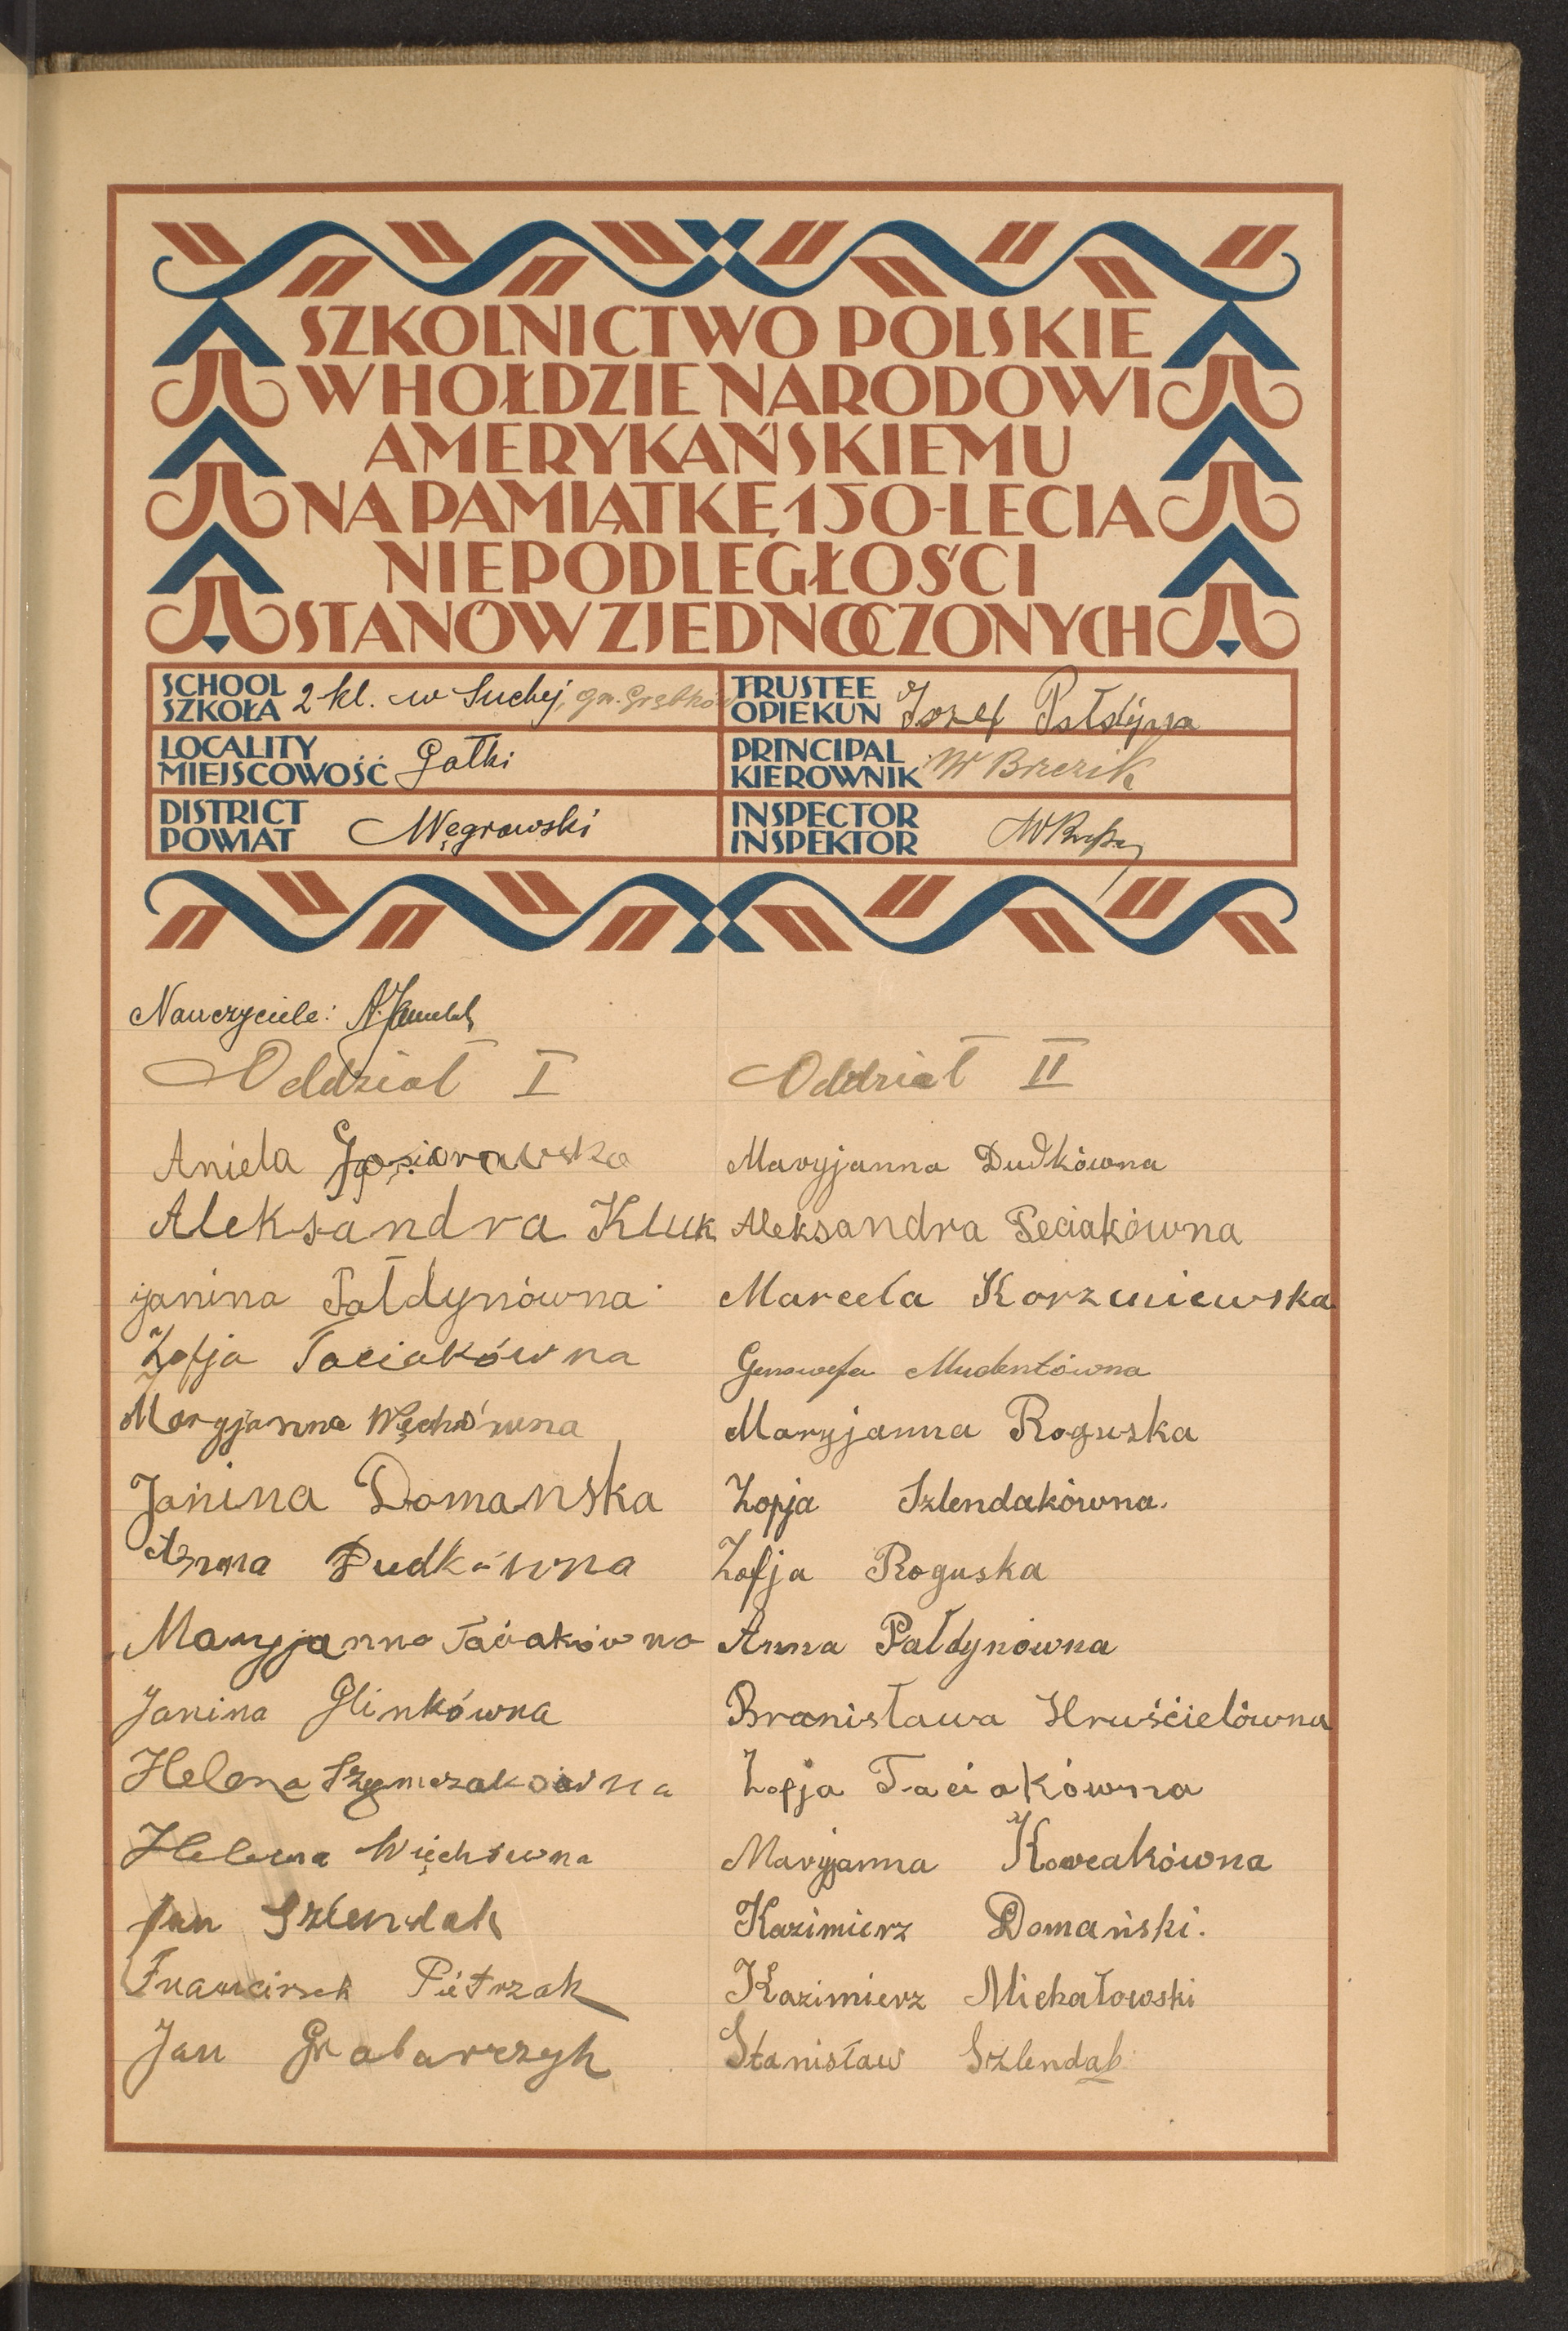 SZKOLNICTWO POLSKIE
W HOŁDZIE NARODOWI
AMERYKAŃSKIEMU
NA PAMIĄTKĘ 150-LECIA
NIEPODLEGŁOŚCI
STANÓW ZJEDNOCZONYCH
SCHOOL
SZKOŁA 2 kl. w Suchej, gm. Grębków
TRUSTEE
OPIEKUN Józef Pałdyna
LOCALITY
MIEJSCOWOŚĆ Gałki
PRINCIPAL
KIEROWNIK W Brzezik
DISTRICT
POWIAT Węgrowski
INSPECTOR
INSPEKTOR
Nauczyciele:
Oddział I
Aniela Gąsiorowska
Aleksandra Kluk
janina Pałdynówna
Zofja Taciakówna
Maryjanna Więchówna
Janina Domanska
Anna Dudkówna
Maryjanna Taciakówna
Janina Glinkówna
Helena Szymczakówna
Helena Więchówna
Jan Szlendak
Franciszek Pietrzak
Jan Grabarczyk
Oddział II
Maryjanna Dudkówna
Aleksandra Peciakówna
Marcela Korzeniewska
Genowefa Mudentówna
Maryjanna Roguska
Zofja Szlendakówna.
Zofja Roguska
Anna Pałdynówna
Bronisława Hruścielówna
Zofja Taciakówna
Maryjanna
Kazimierz Domański.
Kazimierz Michałowski
Stanisław Szlendak